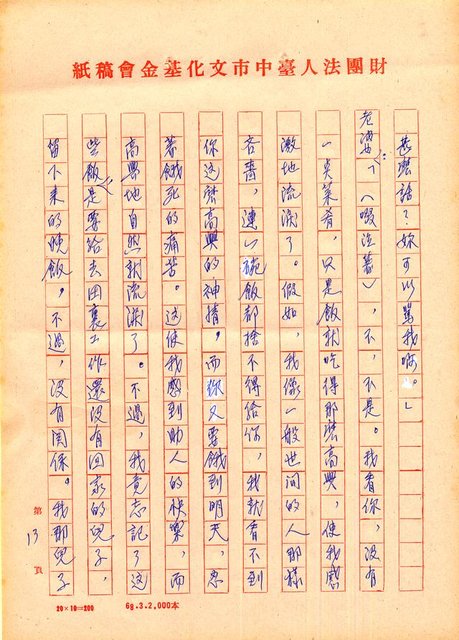 財團法人臺中市文化基金會稿紙
甚麼話？妳可以罵我啊。」
老婆：「（啜泣著），不，不是。我看你，沒有
一点菜肴，只是飯就吃得那麼高興，使我感
激地流淚了。假如，我像一般世間的人那樣
吝嗇，連一碗飯都捨不得給你，我就看不到
你這麼高興的神情。而你又要餓到明天，忍
著餓死的痛苦。這使我感到助人的快樂，而
高興地自然就流淚了。不過，我竟忘記了這
些飯是要給去田裏工作還沒有回家的兒子，
留下來的晚飯。不過，沒有関係。我那兒子
第13頁
20×10=200
68.3.2,000本